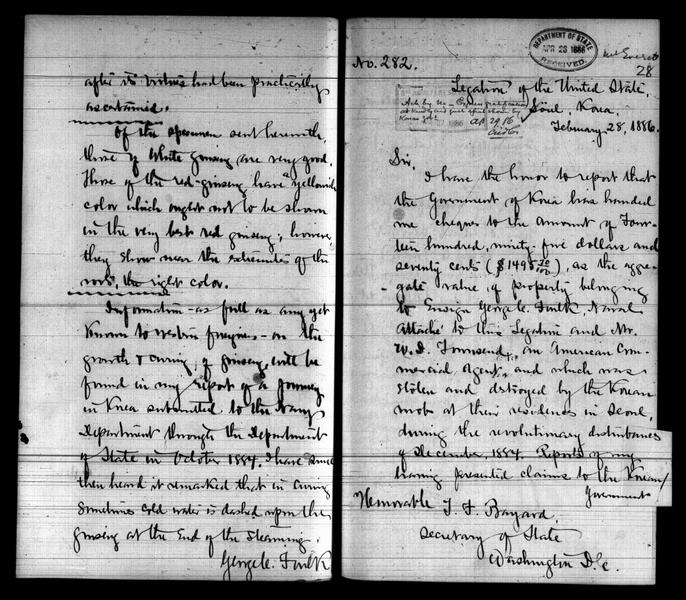 after its virtues had been practically
ascertained.
Of the specimen sent herewith,
those of White ginseng are very good.
Those of the red-ginseng have yellowish
color which ought not to be shown
in the very best red ginseng; however
they show near the extremities of the
roots, the right color.
Information - as full as any yet
known to western foreigners - on the
growth & curing of ginseng will be
found in my report of a journey
in Korea submitted to the Navy
Department through the Department
of State in October 1884. I have since
then heard it remarked that in curing
sometimes cold water is dashed upon the
ginseng at the end of the steaming.
George C. Foulk
DEPARTMENT OF STATE
APR 26 1886
RECEIVED.
Mr Everett
28
No. 282.
Legation of the United States,
Söul, Korea,
February 28, 1886.
Sir,
I have the honor to report that
the Government of Korea has handed
me cheques to the amount of Four-
teen hundred, ninety-five dollars and
seventy cents ($1495 70/100), as the aggre-
gate value of property belonging
to Ensign George C. Foulk, Naval
Attaché to this Legation and Mr.
W. D. Townsend, an American Com-
mercial Agent, and which was
stolen and destroyed by the Korean
mob at their residences in Seoul,
during the revolutionary disturbances
of December, 1884. Reports of my
having presented claims to the Korean
Government
Honorable T. F. Bayard,
Secretary of State
Washington D.C.